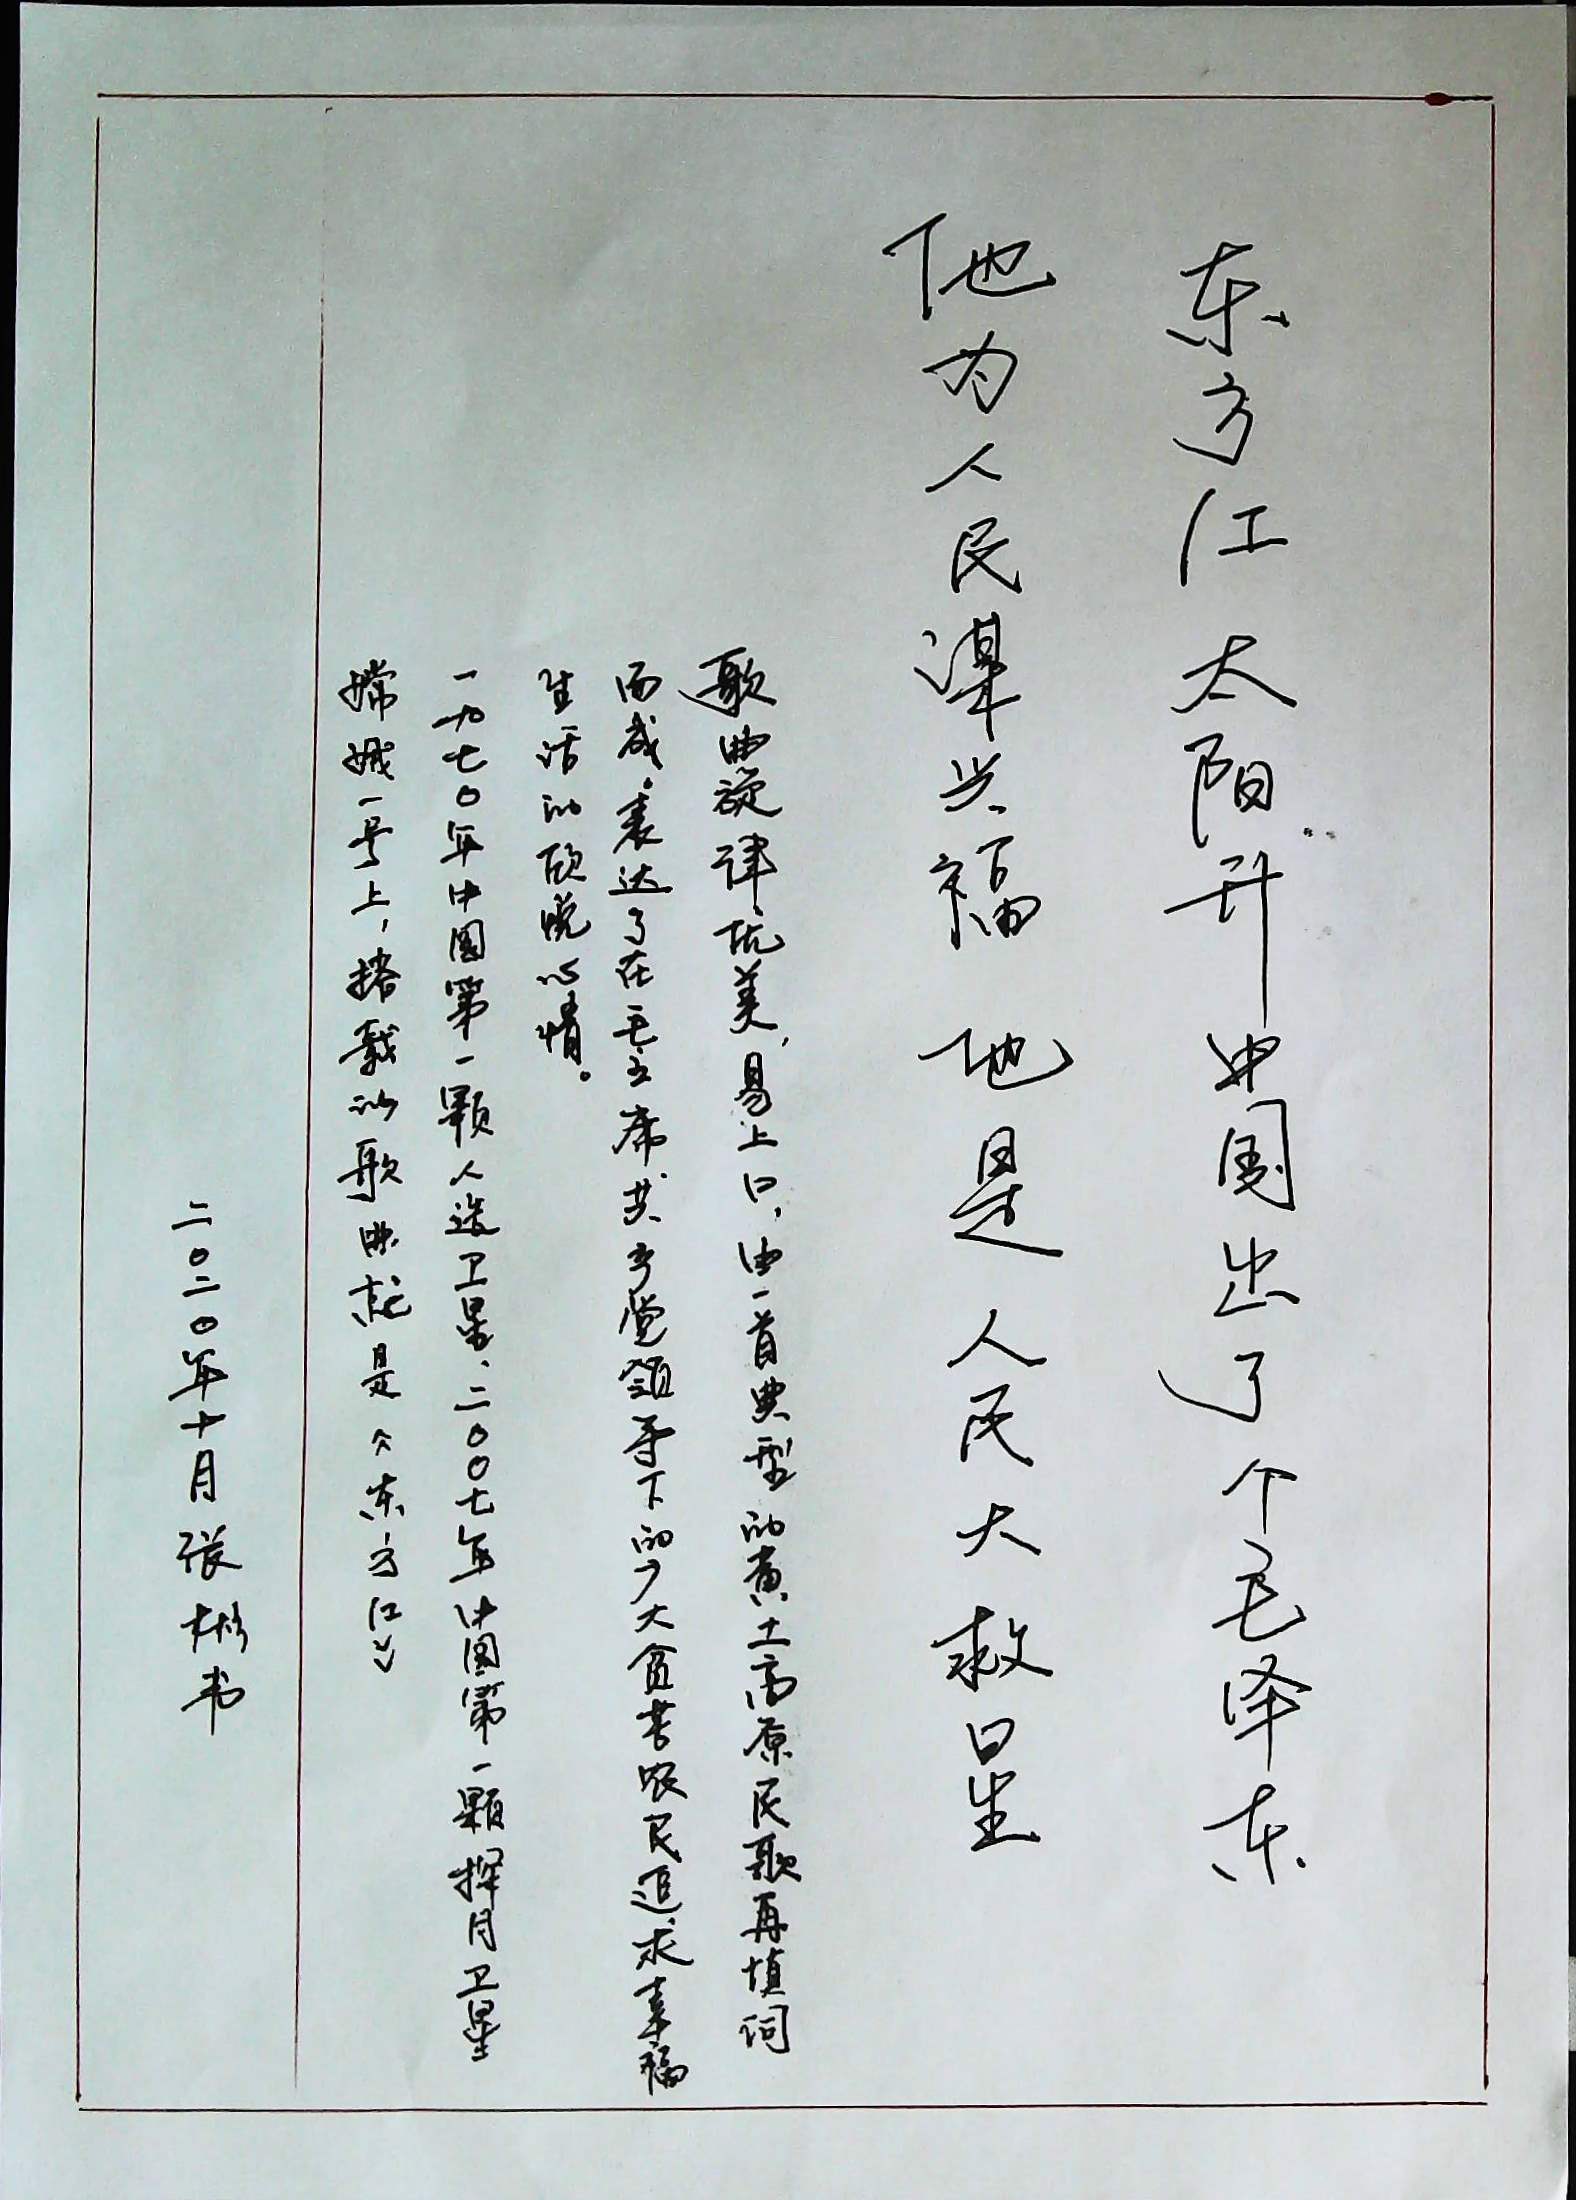 东方红太阳升中国出了个毛泽东
他为人民谋兴福 他是人民大救星
歌曲旋律优美，易上口，由一首典型的黄土高原民歌再填词
而成。表达了在毛主席共产党领导下的广大贫苦农民追求幸福
生活的欣悦心情。
一九七〇年中国第一颗人造卫星、二〇〇七年中国第一颗探月卫星
嫦娥一号上，搭载的歌曲就是《东方红》
二〇二〇年十月张彬书